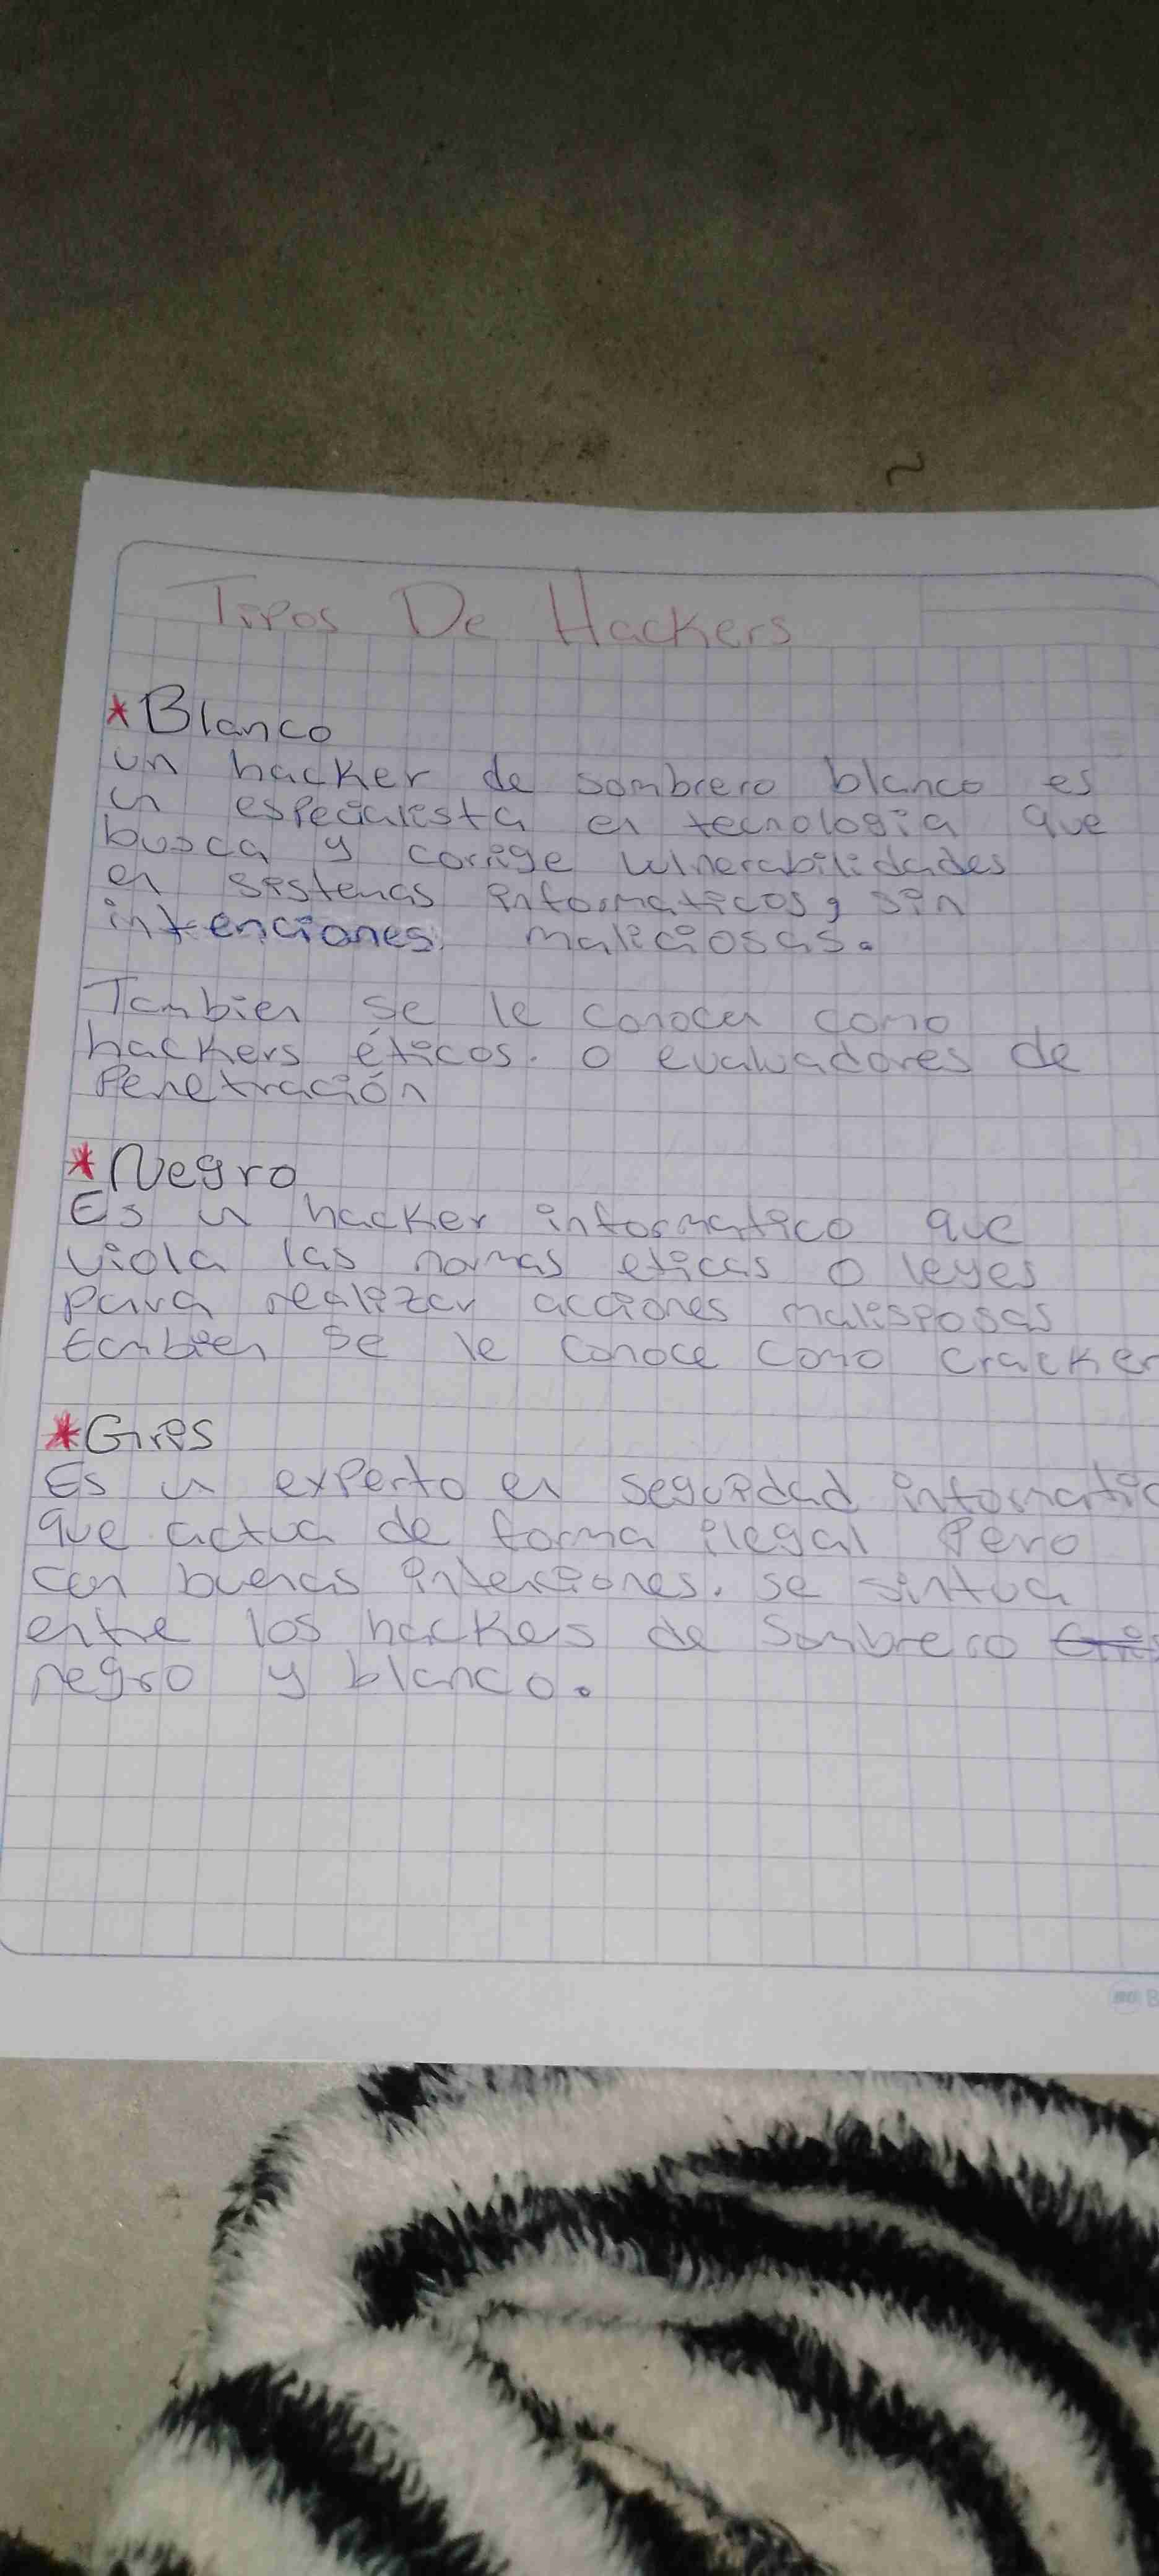 Tipos De Hackers
*Blanco
un hacker de sombrero blanco es
un especialista en tecnologia que
busca y corrige vulnerabilidades
en sistemas informaticos, sin
intenciones maliciosas.
Tambien se le conocer como
hackers éticos. o evaluadores de
Penetración
*Negro
Es un hacker informatico que
viola las normas eticas o leyes
para realizar acciones malisposas
tambien se le conoce como cracker
*Gris
Es un experto en seguridad informatic
que actua de forma ilegal Pero
con buenas intenciones. se sintua
entre los hackers de Sombrero Gris
negro y blanco.